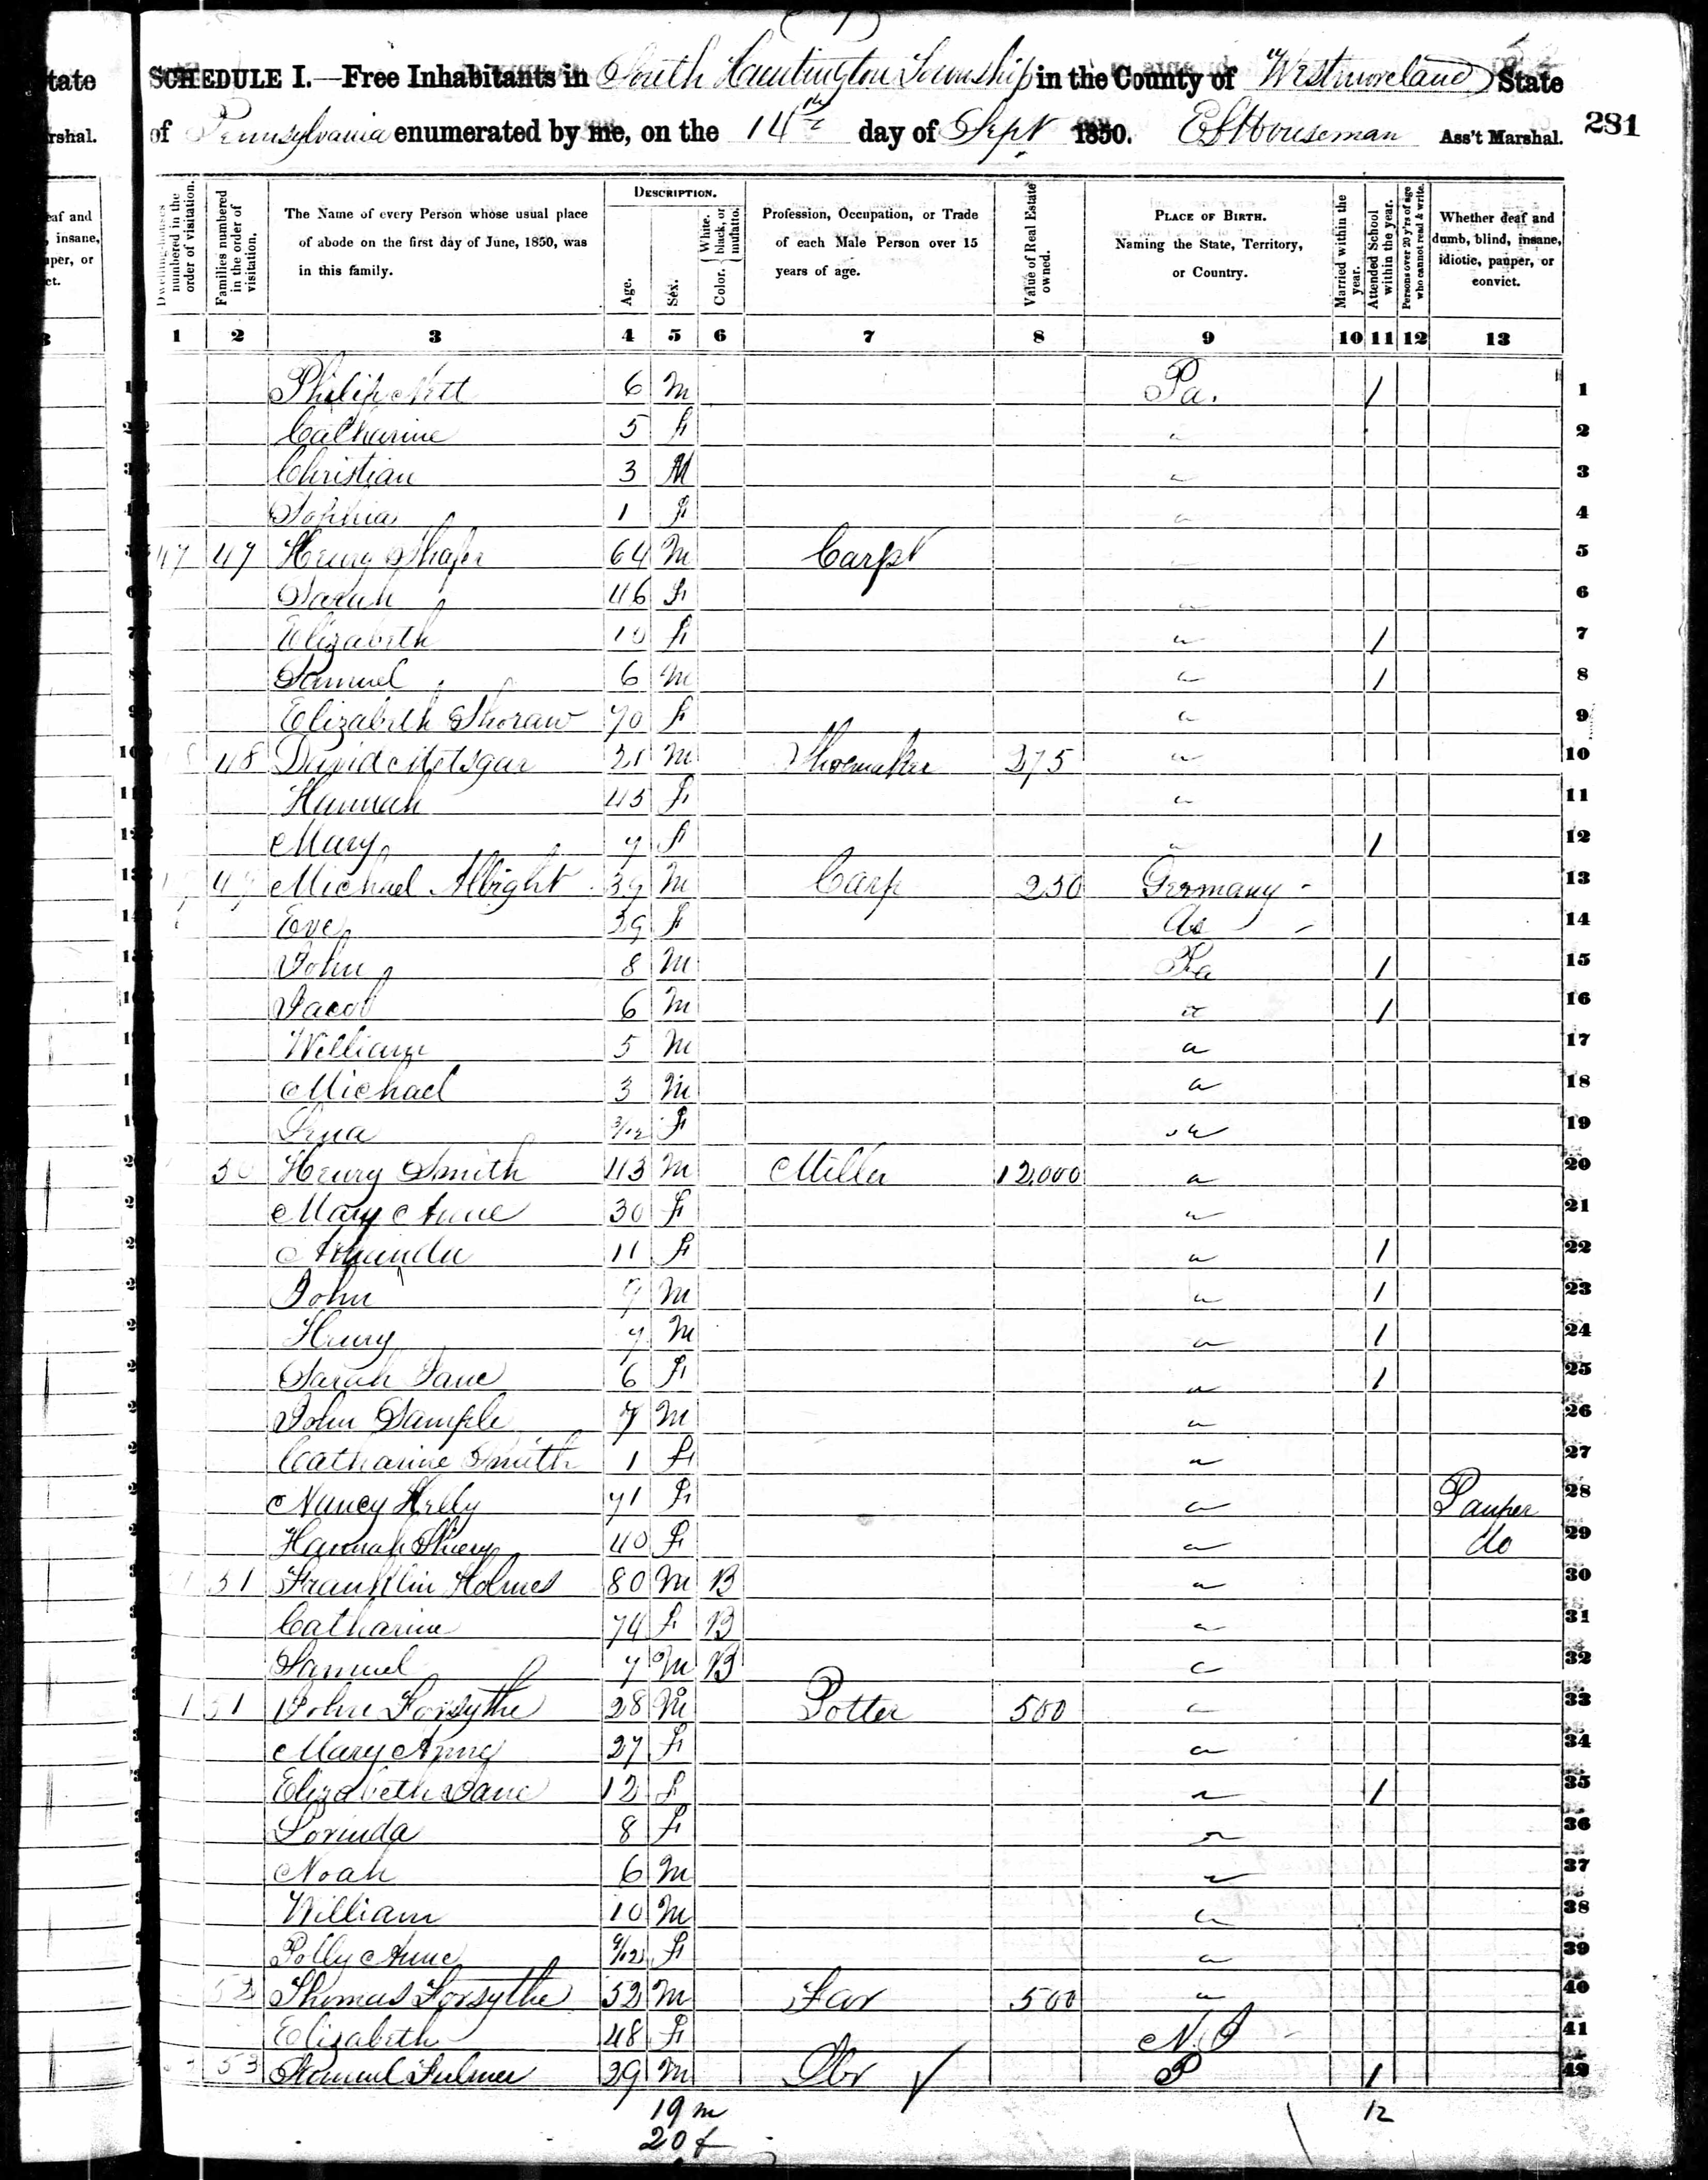 SCHEDULE I.—Free Inhabitants in South Huntington Township in the County of Westmoreland State
of Pennsylvania enumerated by me, on the 14th day of Sept 1850. Houseman Ass't Marshal. 281
tate
rshal.
eaf and
, insane,
per, or
ct.
Dwelling-houses numbered in the order of visitation.
Families numbered in the order of visitation.
The Name of every Person whose usual place of abode on the first day of June, 1850, was in this family.
DESCRIPTION.
Age.
Sex.
Color. White, black, or mulatto.
Profession, Occupation, or Trade of each Male Person over 15 years of age.
Value of Real Estate owned.
PLACE OF BIRTH. Naming the State, Territory, or Country.
Married within the year.
Attended School within the year.
Persons over 20 y'rs of age who cannot read & write.
Whether deaf and dumb, blind, insane, idiotic, pauper, or convict.
1 2 3 4 5 6 7 8 9 10 11 12 13
Philip 6 M Pa. / 1
Catharine 5 F " 2
Christian 3 M " 3
Sophia 1 F " 4
47 47 Henry Shafer 64 M Carpt 5
Sarah 46 F " 6
Elizabeth 10 F " / 7
Samuel 6 M " / 8
Elizabeth 70 F " 9
48 David Metsgar M Shoemaker 275 " 10
Hannah 45 F " 11
Mary 7 F " / 12
49 Michael Albright 39 M Carp 250 Germany - 13
Eve 39 F Do - 14
John 8 M Pa / 15
Jacob 6 M " / 16
William 5 M " 17
Michael 3 M " 18
Lena 3/12 F " 19
50 Henry Smith 43 M Miller 12,000 " 20
Mary Anne 30 F " 21
Amanda 11 F " / 22
John 9 M " / 23
Henry 7 M " / 24
Sarah Jane 6 F " / 25
John Sample 7 M " 26
Catharine Smith 1 F " 27
Nancy 71 F " Pauper 28
Hannah 40 F " do 29
51 Franklin Holmes 80 M B " 30
Catharine 74 F B " 31
Samuel 7 M B " 32
1 51 John Forsythe 28 M Potter 500 " 33
Mary Anne 27 F " 34
Elizabeth Jane 12 F " / 35
Lorinda 8 F " 36
Noah 6 M " 37
William 10 M " 38
Polly Anne 9/12 F " 39
52 Thomas Forsythe 52 M Far 500 " 40
Elizabeth 48 F N.J - 41
53 Samuel Fulmer 29 M Lbr √ P / 42
19 m 12
20 f